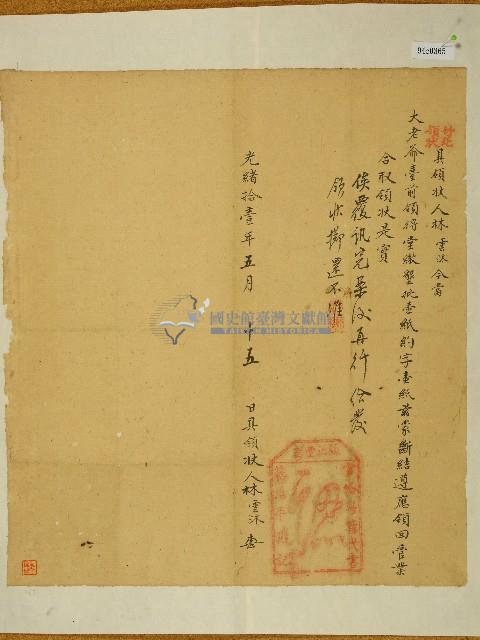 94c0365
竹北
領狀
具領狀人林雲沐今當
大老爺臺前領得堂繳墾批壹紙約字壹紙茲蒙斷結遵應領回管業
合取領狀是實
俟覆訊完案後再行給發
領狀擲還不准
光緒拾壹年五月 十五 日具領狀人林雲沐
國史館臺灣文獻館
TAIWAN HISTORICA